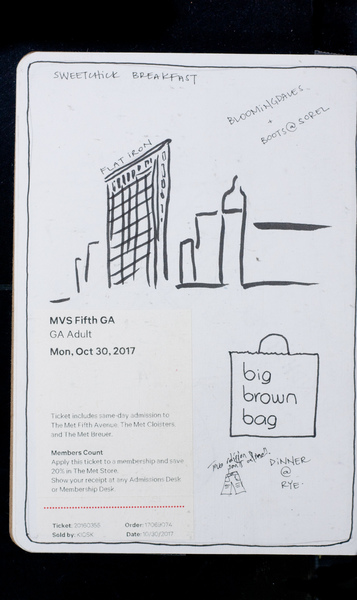 SWEETCHICK BREAKFAST
BLOOMINGDALES
+
BOOTS @ SOREL
FLAT IRON
MVS Fifth GA
GA Adult
Mon, Oct 30, 2017
Ticket includes same-day admission to
The Met Fifth Avenue, The Met Cloisters,
and The Met Breuer.
Members Count
Apply this ticket to a membership and save
20% in The Met Store.
Show your receipt at any Admissions Desk
or Membership Desk.
Ticket:
Order:
Sold by: KGSK
Date: 10/30/2017
big
brown
bag
DINNER
@
RYE